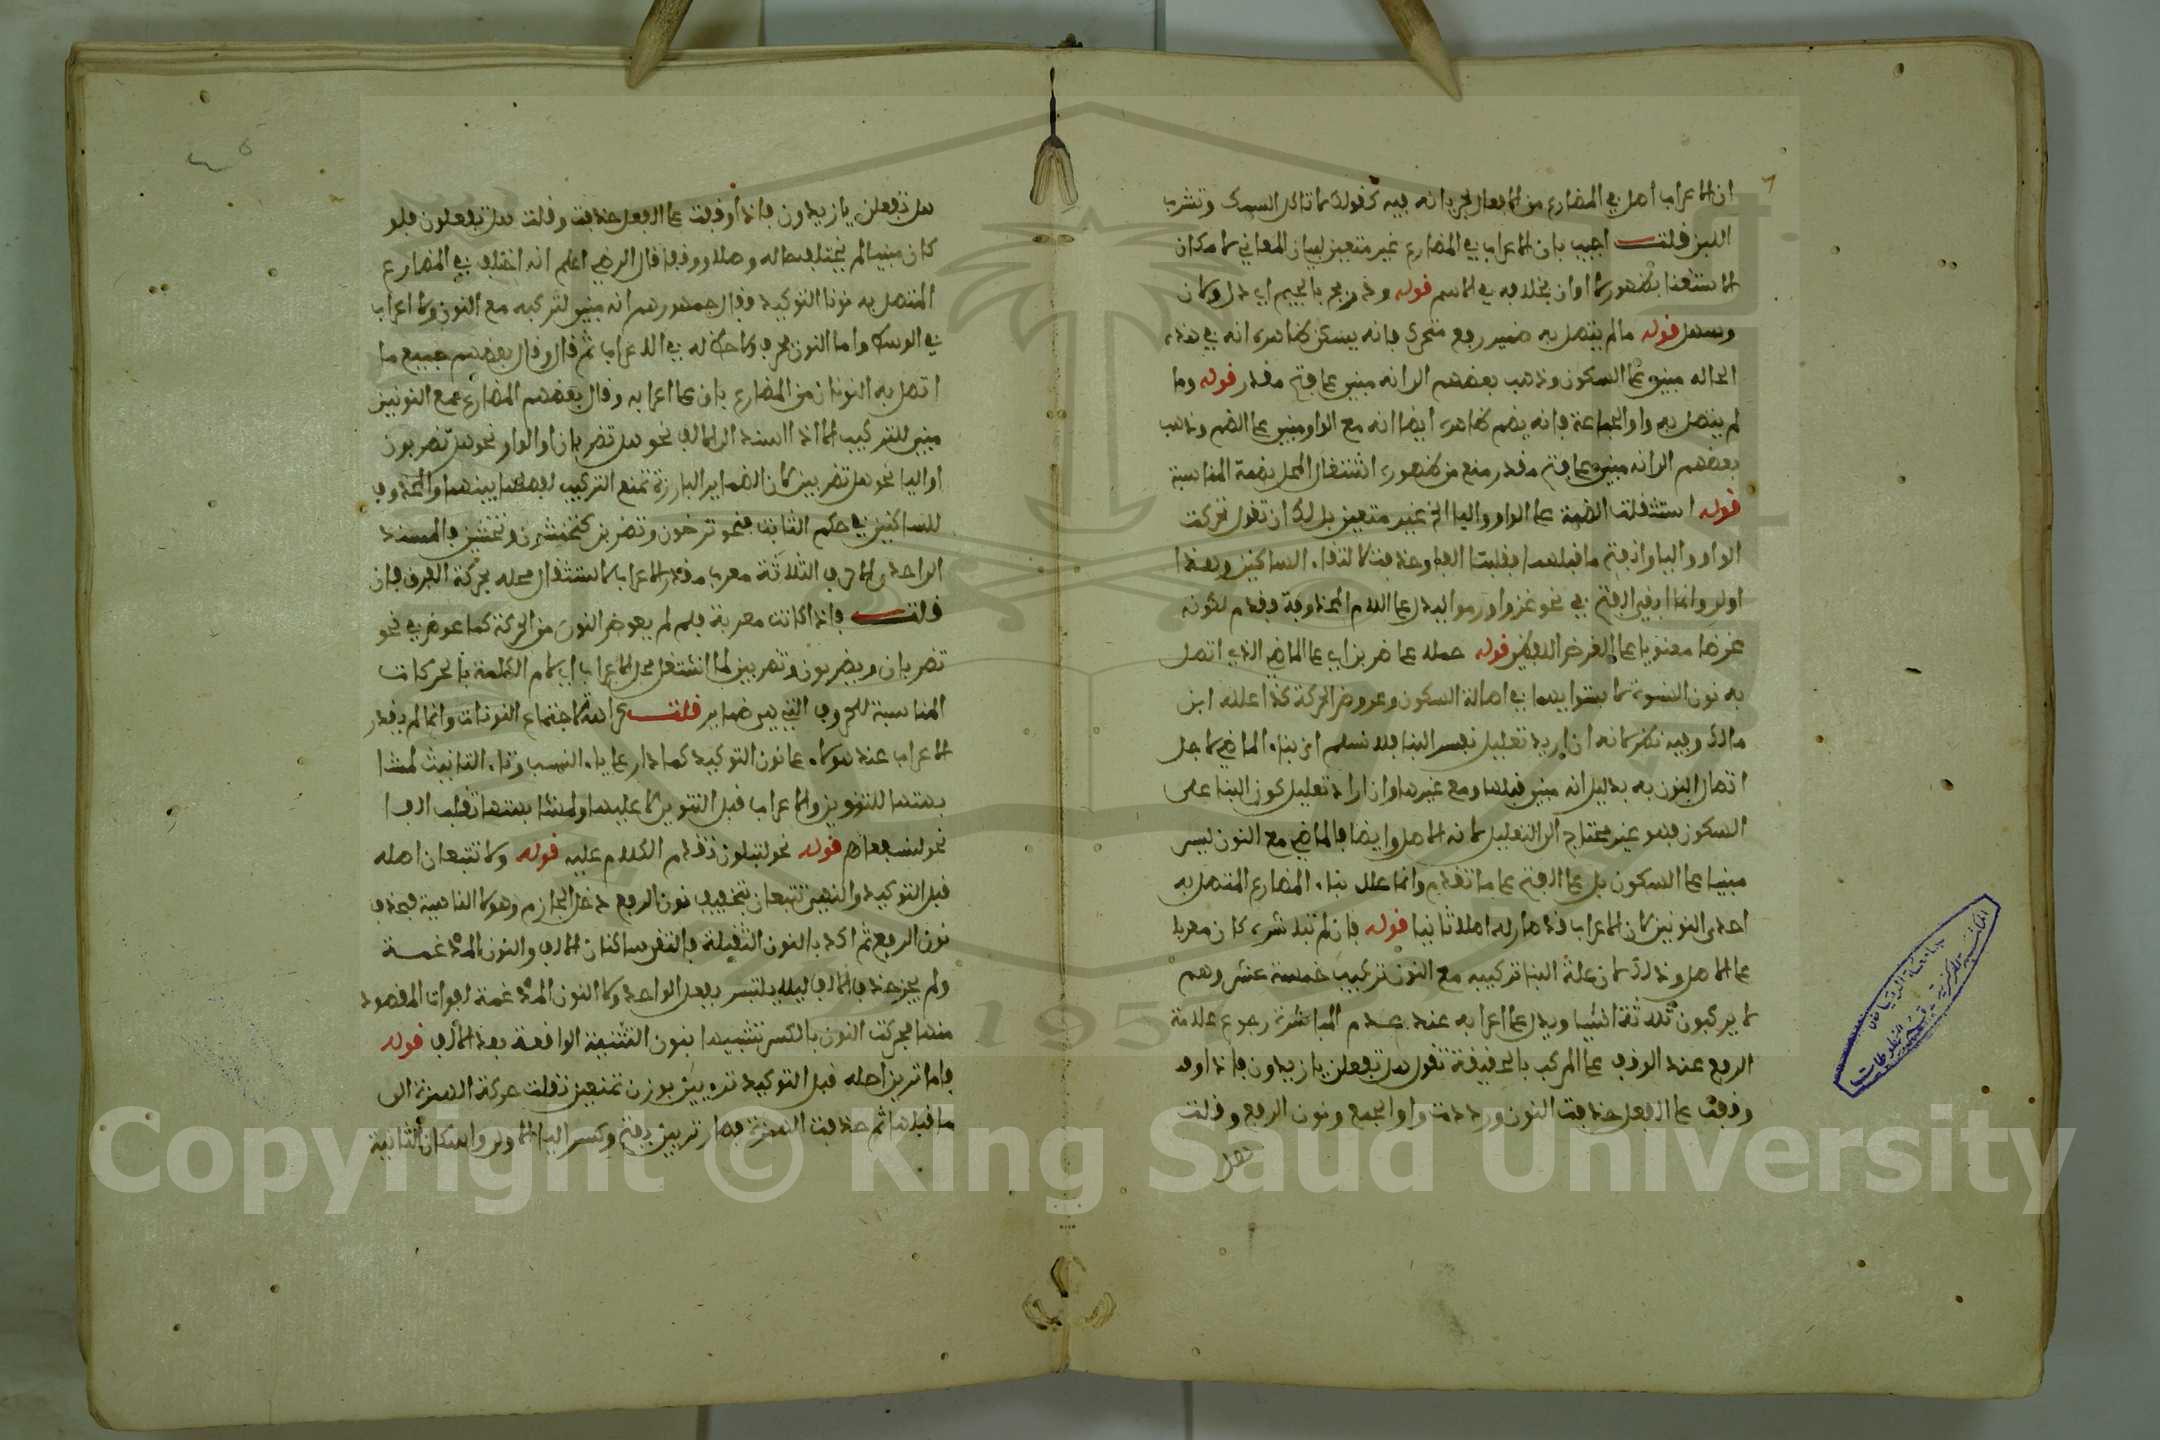 ان الاعراب اصل في المضارع من الافعال لجريانه فيه كقولك لا تاكل السمك وتشرب
اللبن قلت اجيب بان الاعراب في المضارع غير متعين لبيان المعاني لامكان
الاستغنا بظهور لا اوان بخلافه في الاسم قوله ودحرج بالجيم اي دل وكان
وسهل قوله ما لم يتصل به ضمير رفع متحرك فانه يسكن ظاهره انه في هذه
الحاله مبني على السكون وذهب بعضهم الى انه مبني على فتح مقدر قوله وما
لم يتصل به واو الجماعة فانه يضم ظاهره ايضا انه مع الواو مبني على الضم وذهب
بعضهم الى انه مبني على فتح مقدر منع من ظهوره اشتغال المحل بضمة المناسبة
قوله استثقلت الضمة على الواو واليا الخ غير متعين بل لك ان تقول تحركت
الواو واليا وانفتح ما قبلهما فقلبتا الفا وحذفت لالتقاء الساكنين وهذا
اولى وانما ابقي الفتح في نحو غزوا ورموا ليدل على اللام المحذوفة وقدم لكونه
غرضا معنويا على الغرض اللفظي قوله حمله على ضربن اي على الماضي الذي اتصل
به نون النسوة لاستوايهما في اصالة السكون وعروض الحركة كذا علله ابن
مالك وفيه نظر لانه ان اريد تعليل نفس البنا فلا نسلم ان بناء الماضي لاجل
اتصال النون به بدليل انه مبني قبلها ومع غيرها وان اراد تعليل كون البنا على
السكون فهو غير محتاج الى التعليل لانه الاصل وايضا فالماضي مع النون ليس
مبنيا على السكون بل على الفتح على ما تقدم وانما علل بناء المضارع المتصل به
احدى النونين لان الاعراب قد صار له اصلا ثانيا قوله فان لم تباشره كان معربا
على الاصل وذلك لان علة البنا تركيبه مع النون تركيب خمسة عشر وهم
لا يركبون ثلاثة اشيا ويدل على اعرابه عند عدم المباشرة رجوع علامة
الرفع عند الوقف على المركب بالخفيفة تقول هل تفعلن يا زيدون فاذا وقف
وقفت على الفعل حذفت النون ورددت واو الجمع ونون الرفع وقلت
هل
هل تفعلن يا زيدون فاذا وقفت على الفعل حذفت وقلت هل تفعلون فلو
كان مبنيا لم يختلف حاله وصلا ووقفا قال الرضي اعلم انه اختلف في المضارع
المتصل به نونا التوكيد فقال جمهورهم انه مبني لتركبه مع النون ولا اعراب
في الوسط واما النون فحرف ولا حظ له في الاعراب ثم قال وقال بعضهم جميع ما
اتصل به النونان من المضارع باق على اعرابه وقال بعضهم المضارع مع النونين
مبني للتركيب الا اذا اسند الى الالف نحو هل تضربان او الواو نحو هل تضربون
او اليا نحو هل تضربين لان الضماير البارزة تمنع التركيب لفصلها بينهما والمحذوف
للساكنين في حكم الثابت فنحو ترخون وتضربن كتخشون وتخشين فالمسند
الواحد والاحرف الثلاثة معرب مقدر الاعراب لاشتغال محله بحركة الفرق فان
قلت فاذا كانت معربة فلم لم يعوض النون من الحركة كما عوض في نحو
تضربان ويضربون وتضربين لما اشتغل محل الاعراب اي لام الكلمة بالحركات
المناسبة للحروف التي هي ضماير قلت كراهة لاجتماع النونات وانما لم يقدر
الاعراب عند هولاء على نون التوكيد كما دار على ياء النسب وتاء التانيث لمشا
بهتها للتنوين والاعراب قبل التنوين لا عليها ولمشابهتها تقلب الفا
نحو لنسفعا قوله نحو لتبلون تقدم الكلام عليه قوله ولا تتبعان اصله
قبل التوكيد والنهي تتبعان بتخفيف نون الرفع دخل الجازم وهو لا الناهية فحذف
نون الرفع ثم اكد بالنون الثقيلة فالتقى ساكنان الالف والنون المدغمة
ولم يجز حذف الالف ليلا يلتبس بفعل الواحد ولا النون المدغمة لفوات المقصود
منها فحركت النون بالكسر تشبيها بنون التثنية الواقعة بعد الالف قوله
فاما ترين اصله قبل التوكيد ترءيين بوزن تمنعين نقلت حركة الهمزة الى
ما قبلها ثم حذفت الهمزة فصار تريين بفتح وكسر اليا الاولى واسكان الثانية
المكتبة المركزية - قسم المخطوطات
جامعة الرياض
1957
Copyright © King Saud University